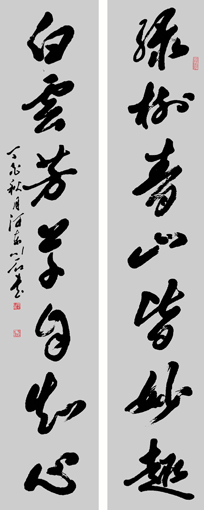 绿树青山皆妙趣
白雲芳草自知心
丁亥秋月河东